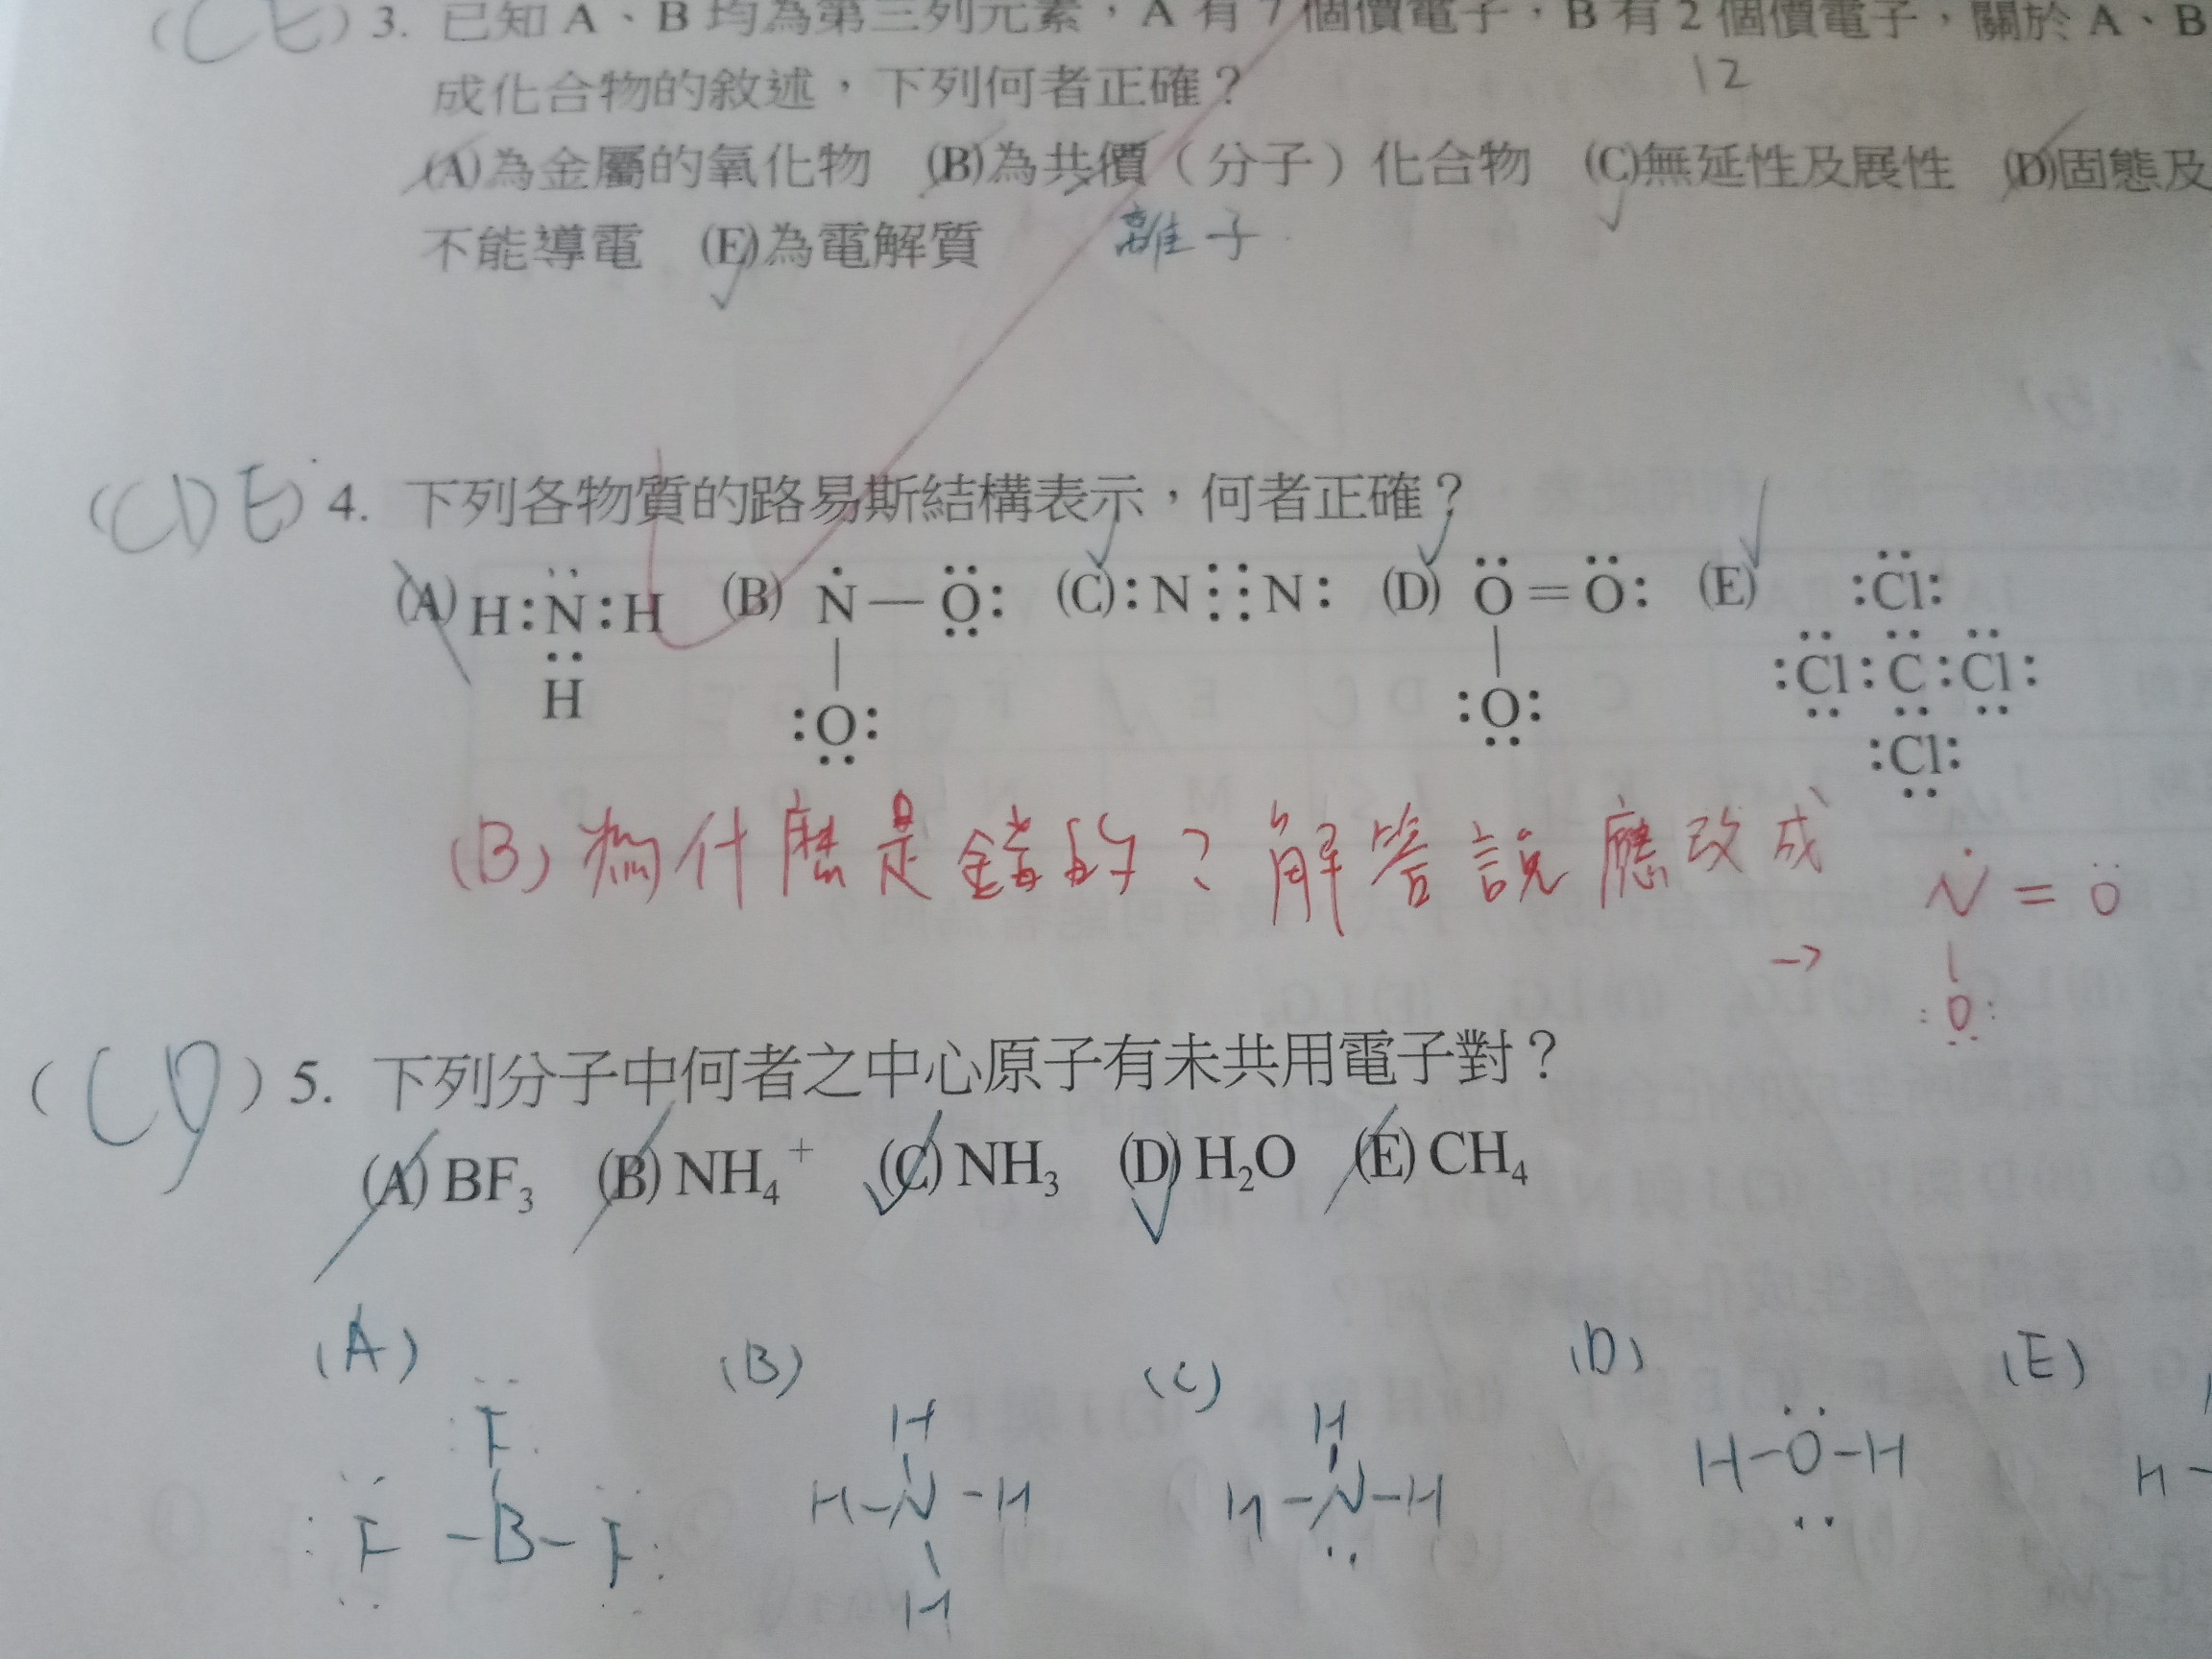 (CE) 3. 已知 A、B 均為第三列元素，A 有 7 個價電子，B 有 2 個價電子，關於 A、B
12
成化合物的敘述，下列何者正確？
(A)為金屬的氧化物 (B)為共價（分子）化合物 (C)無延性及展性 (D)固態及
不能導電 (E)為電解質
離子
(CDE) 4. 下列各物質的路易斯結構表示，何者正確？
(A) H:N:H (B) N—O: (C) :N⋮⋮N: (D) O=O: (E) :Cl:
:Cl:C:Cl:
H :O: :O: :Cl:
(B) 為什麼是錯的？解答說應改成
→ N=O
:O:
(CD) 5. 下列分子中何者之中心原子有未共用電子對？
(A) BF₃ (B) NH₄⁺ (C) NH₃ (D) H₂O (E) CH₄
(A) (B) (C) (D) (E)
F H H
F-B-F H-N-H H-N-H H-O-H H-
H